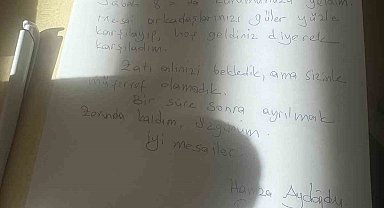 Sabah 8 de kurumunuza geldim.
mesai arkadaşlarınızı güler yüzle
karşılayıp, hoş geldiniz diyerek
karşıladım.
Zatı alinizi bekledik, ama sizinle
müşerref olamadık.
Bir süre sonra ayrılmak
zorunda kaldım, üzgünüm.
iyi mesailer
Hamza Aydoğdu